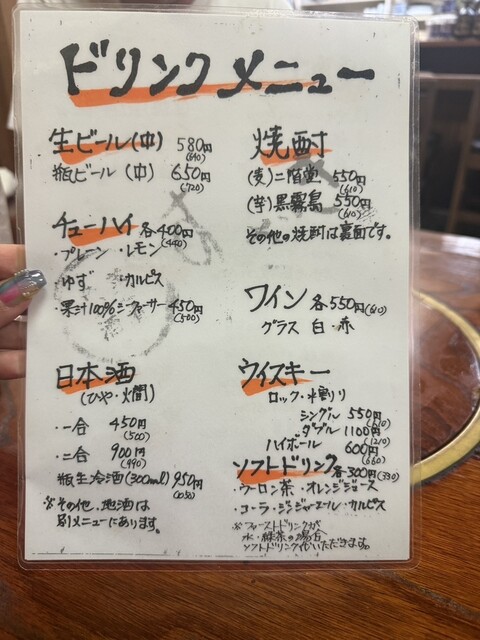 ドリンクメニュー
生ビール(中) 580円
(640)
瓶ビール (中) 650円
(720)
チューハイ 各400円
(440)
・プレーン ・レモン
・ゆず ・カルピス
・果汁100%シークァーサー 450円
(500)
日本酒
(ひや・燗)
・一合 450円
(500)
・二合 900円
(990)
瓶生冷酒(300ml) 950円
(1050)
※その他、地酒は
別メニューにあります。
焼酎
(麦)二階堂 550円
(610)
(芋)黒霧島 550円
(610)
その他の焼酎は裏面です。
ワイン 各550円(610)
グラス 白・赤
ウィスキー
ロック・水割り
シングル 550円
(610)
ダブル 1100円
(1210)
ハイボール 600円
(660)
ソフトドリンク 各300円(330)
・ウーロン茶・オレンジジュース
・コーラ・ジンジャーエール・カルピス
※ファーストドリンクが
水・緑茶の場合
ソフトドリンク代いただきます。